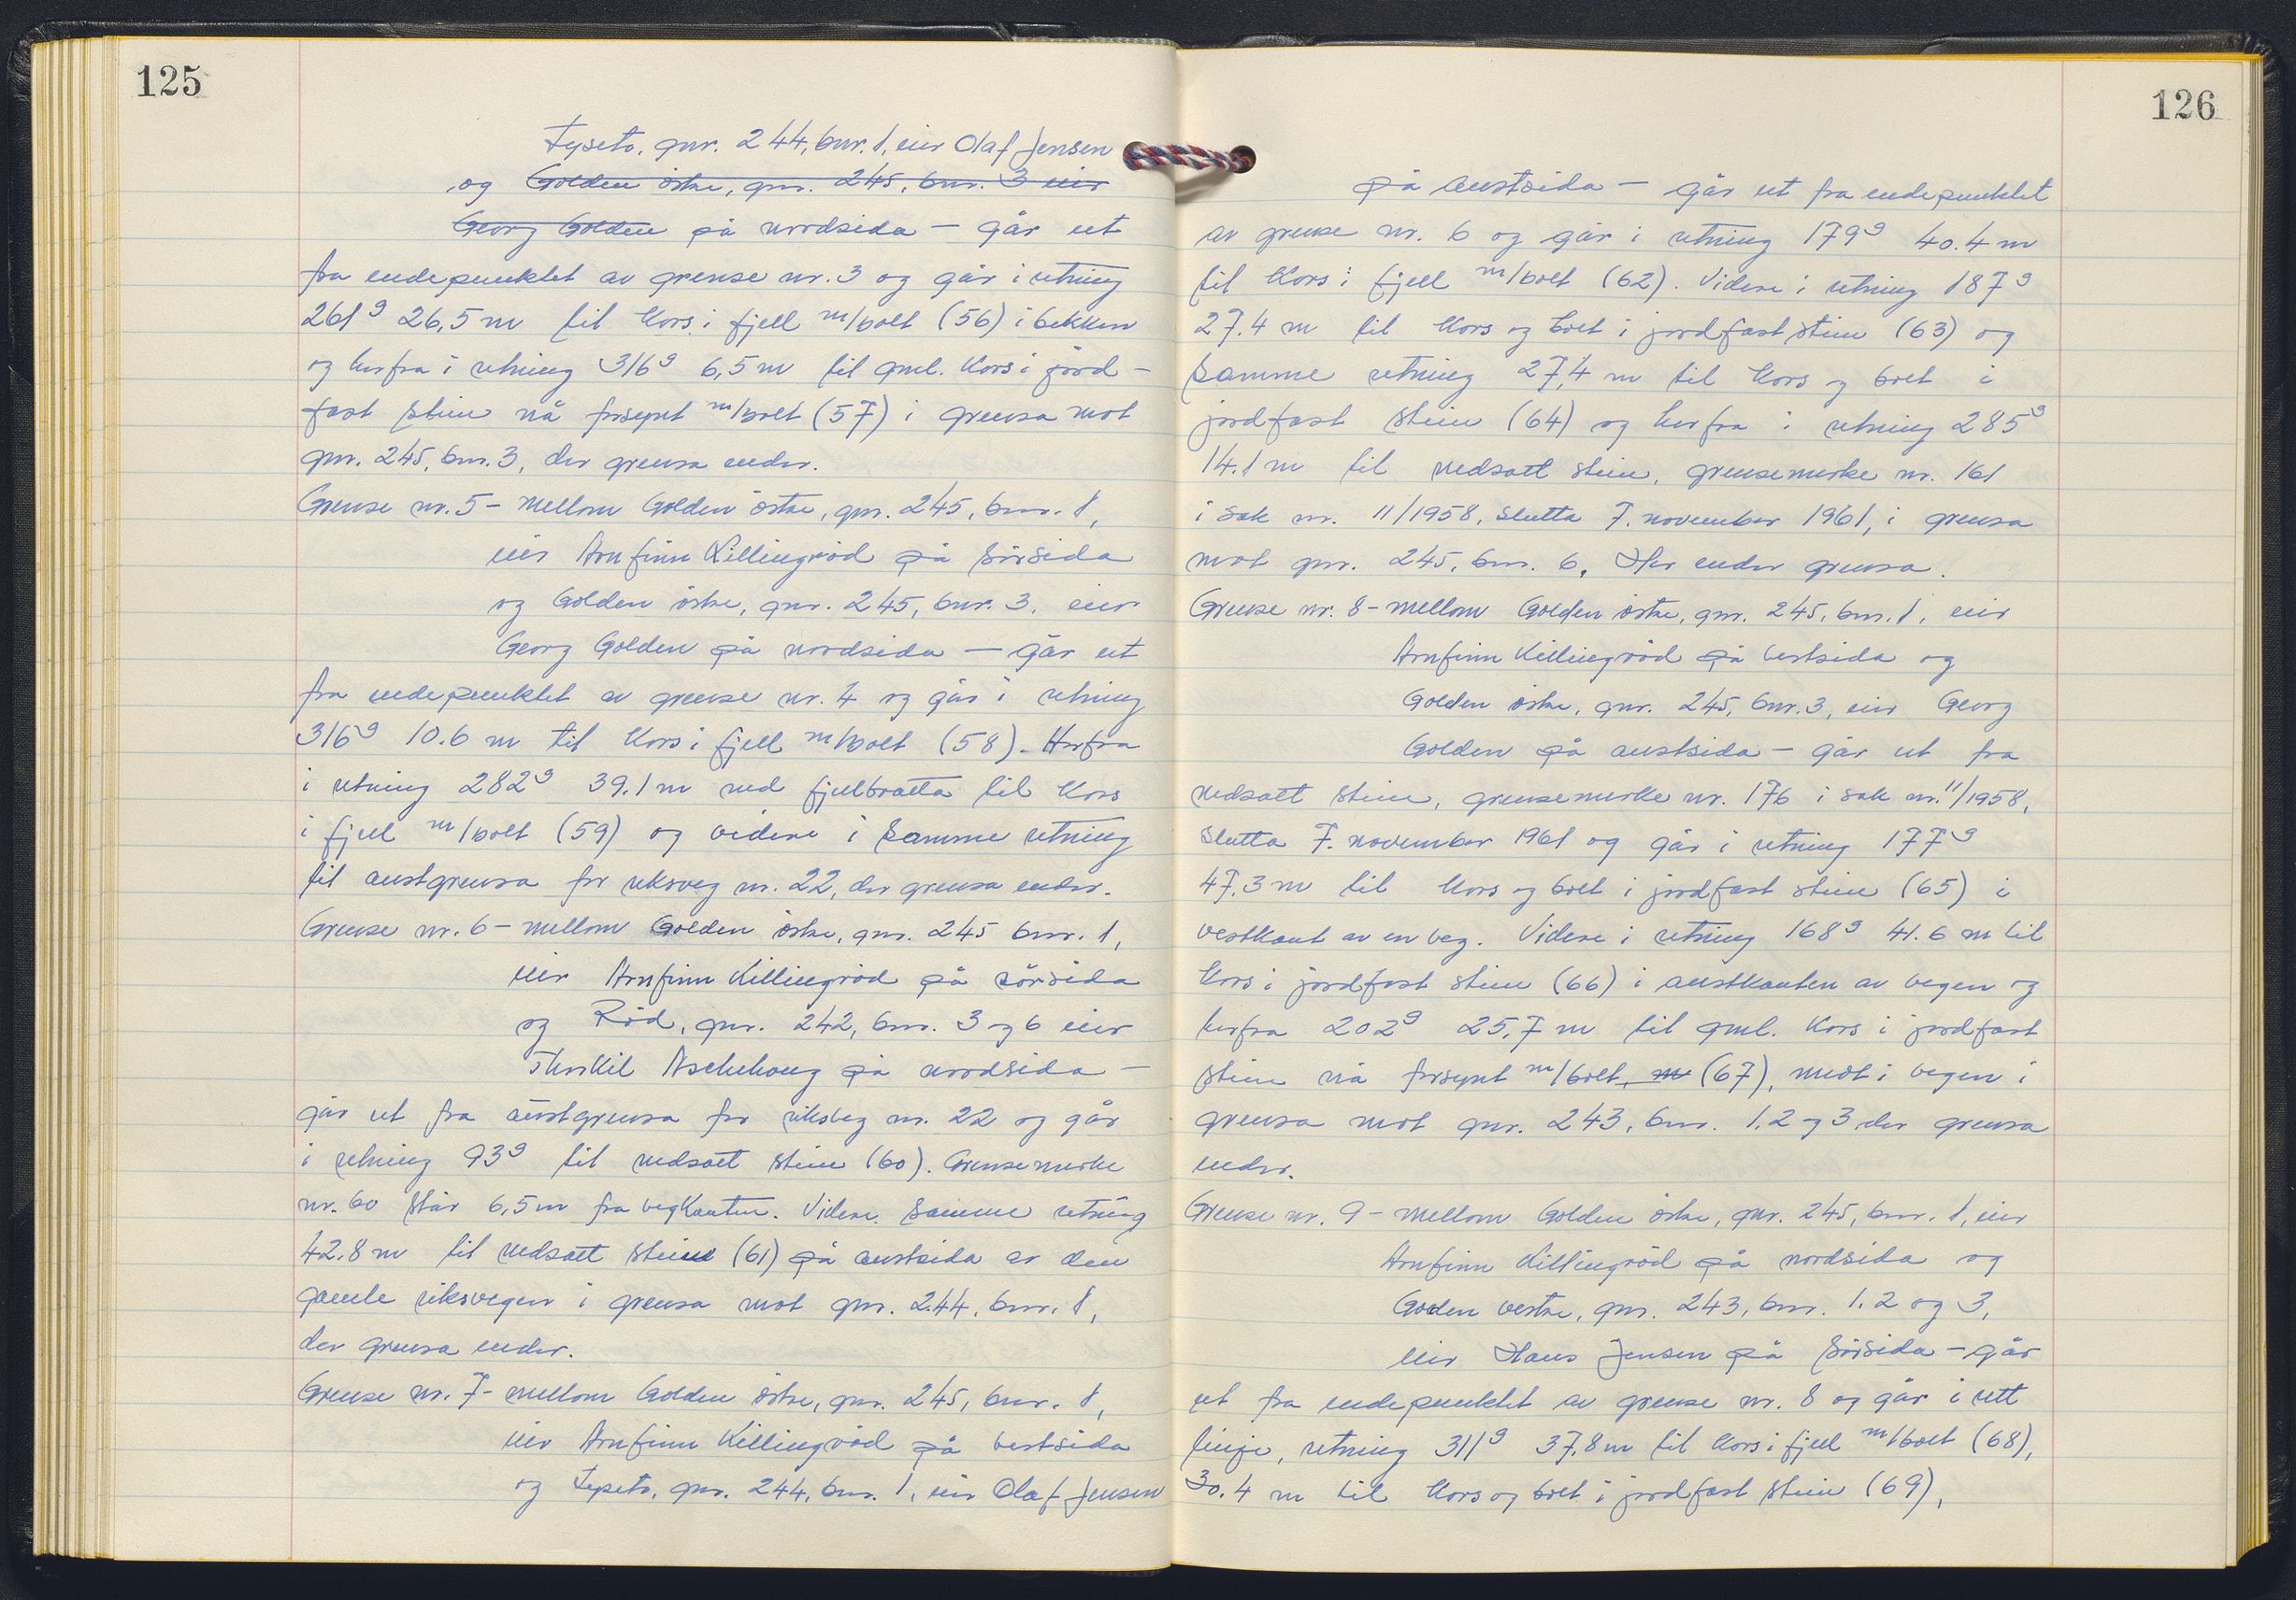 125
Tyseto, gnr. 244, bnr. 1, eier Olaf Jensen
og Golden östre, gnr. 245, bnr. 3 eier
Georg Golden på nordsida - går ut
fra endepunktet av grense nr. 3 og går i retning
261g 26,5 m til kors i fjell m/bolt (56) i bekken
og herfra i retning 316g 6,5 m til gml. kors i jord-
fast stein nå forsynt m/bolt (57) i grensa mot
gnr. 245, bnr. 3, der grensa ender.
Grense nr. 5 - mellom Golden östre, gnr. 245, bnr. 1,
eier Arnfinn Killingröd på sörsida
og Golden östre, gnr. 245, bnr. 3, eier
Georg Golden på nordsida - går ut
fra endepunktet av grense nr. 4 og går i retning
316g 10.6 m til kors i fjell m/bolt (58). Herfra
i retning 282g 39.1 m ned fjellbratta til kors
i fjell m/bolt (59) og videre i samme retning
til austgrensa for riksveg nr. 22, der grensa ender.
Grense nr. 6 - mellom Golden östre, gnr. 245 bnr. 1,
eier Arnfinn Killingröd på sörsida
og Röd, gnr. 242, bnr. 3 og 6 eier
Thorkil Aschehoug på nordsida -
går ut fra austgrensa for riksveg nr. 22 og går
i retning 93g til nedsatt stein (60). Grensemerke
nr. 60 står 6,5 m fra vegkanten. Videre samme retning
42.8 m til nedsatt stein (61) på austsida av den
gamle riksvegen i grensa mot gnr. 244, bnr. 1,
der grensa ender.
Grense nr. 7 - mellom Golden östre, gnr. 245, bnr. 1,
eier Arnfinn Killingröd på vestsida
og Tyseto, gnr. 244, bnr. 1, eier Olaf Jensen
126
på austsida - går ut fra endepunktet
av grense nr. 6 og går i retning 179g 40.4 m
til kors i fjell m/bolt (62). Videre i retning 187g
27.4 m til kors og bolt i jordfast stein (63) og
samme retning 27,4 m til kors og bolt i
jordfast stein (64) og herfra i retning 285g
14.1 m til nedsatt stein, grensemerke nr. 161
i sak nr. 11/1958, slutta 7. november 1961, i grensa
mot gnr. 245, bnr. 6. Her ender grensa.
Grense nr. 8 - mellom Golden östre, gnr. 245, bnr. 1, eier
Arnfinn Killingröd på vestsida og
Golden östre, gnr. 245, bnr. 3, eier Georg
Golden på austsida - går ut fra
nedsatt stein, grensemerke nr. 176 i sak nr. 11/1958,
slutta 7. november 1961 og går i retning 177g
47.3 m til kors og bolt i jordfast stein (65) i
vestkant av en veg. Videre i retning 168g 41.6 m til
kors i jordfast stein (66) i austkanten av vegen og
herfra 202g 25,7 m til gml. kors i jordfast
stein nå forsynt m/bolt, m (67), midt i vegen i
grensa mot gnr. 243, bnr. 1.2 og 3, der grensa
ender.
Grense nr. 9 - mellom Golden östre, gnr. 245, bnr. 1, eier
Arnfinn Killingröd på nordsida og
Golden vestre, gnr. 243, bnr. 1.2 og 3,
eier Hans Jensen på sörsida - går
ut fra endepunktet av grense nr. 8 og går i rett
linje, retning 311g 37,8 m til kors i fjell m/bolt (68),
30.4 m til kors og bolt i jordfast stein (69),